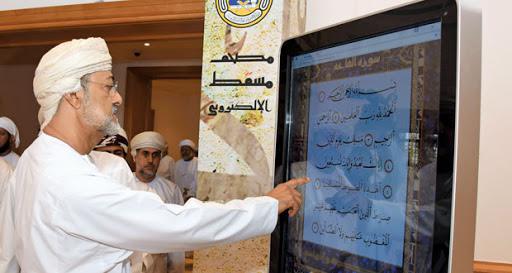 مصحف
مسقط
الإلكتروني
سورة الفاتحة
بسم الله الرحمن الرحيم
الحمد لله رب العالمين الرحمن
الرحيم ملك يوم الدين
إياك نعبد وإياك نستعين
اهدنا الصراط المستقيم
صراط الذين أنعمت عليهم غير
المغضوب عليهم ولا الضالين